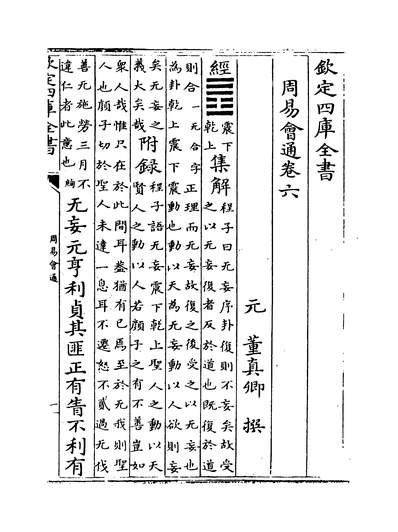 欽定四庫全書
周易會通卷六
元 董真卿 撰
經 ䷘ 震下
乾上 集解 程子曰无妄序卦復則不妄矣故受
之以无妄復者反於道也既復於道
則合一无合字正理而无妄故復之後受之以无妄也
為卦乾上震下震動也動以天為无妄動以人欲則妄
矣无妄之
義大矣哉 附錄 程子語无妄震下乾上聖人之動以天
賢人之動以若顏子之有不善豈如
衆人哉惟只在於此間耳蓋猶有已焉至於无我則聖
人也顏子切於聖人未達一息耳不遷怒不貳過无伐
善无施勞三月不
違仁者此意也絢 无妄元亨利貞其匪正有眚不利有
欽定四庫全書
周易會通
一